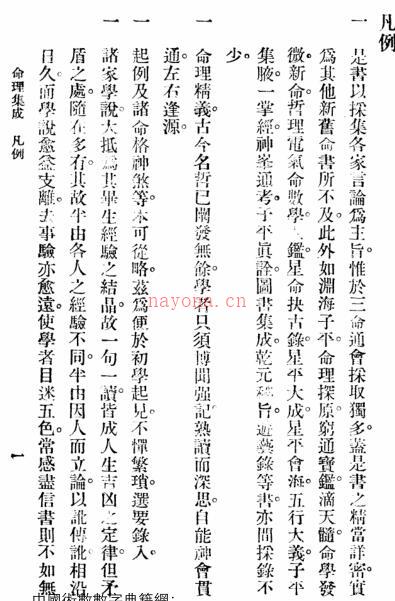 凡例
一 是書以採集各家言論爲主旨惟於三命通會採取獨多蓋是書之精當詳密實
爲其他新舊命書所不及此外如淵海子平命理探原窮通寶鑑滴天髓命學發
微新命哲理電氣命數學土鑑星命抉古錄星平大成星平會海五行大義子平
集腋一掌經神峯通考子平眞詮圖書集成乾元秘旨遊藝錄等書亦間採錄不
少。
一 命理精義古今名哲已闡發無餘學者只須博聞强記熟讀而深思自能融會貫
通左右逢源。
一 起例及諸命格神煞等本可從略茲爲便於初學起見不憚繁瑣選要錄入。
一 諸家學說大抵爲其畢生經驗之結晶故一句一讀皆成人生吉凶之定律但矛
盾之處隨在多有其故半由各人之經驗不同半由因人而立論以訛傳訛相沿
日久而學說愈益支離去事驗亦愈遠使學者目迷五色常感盡信書則不如無
命理集成 凡例
一
nayona.cn
中國術數數字典籍網: